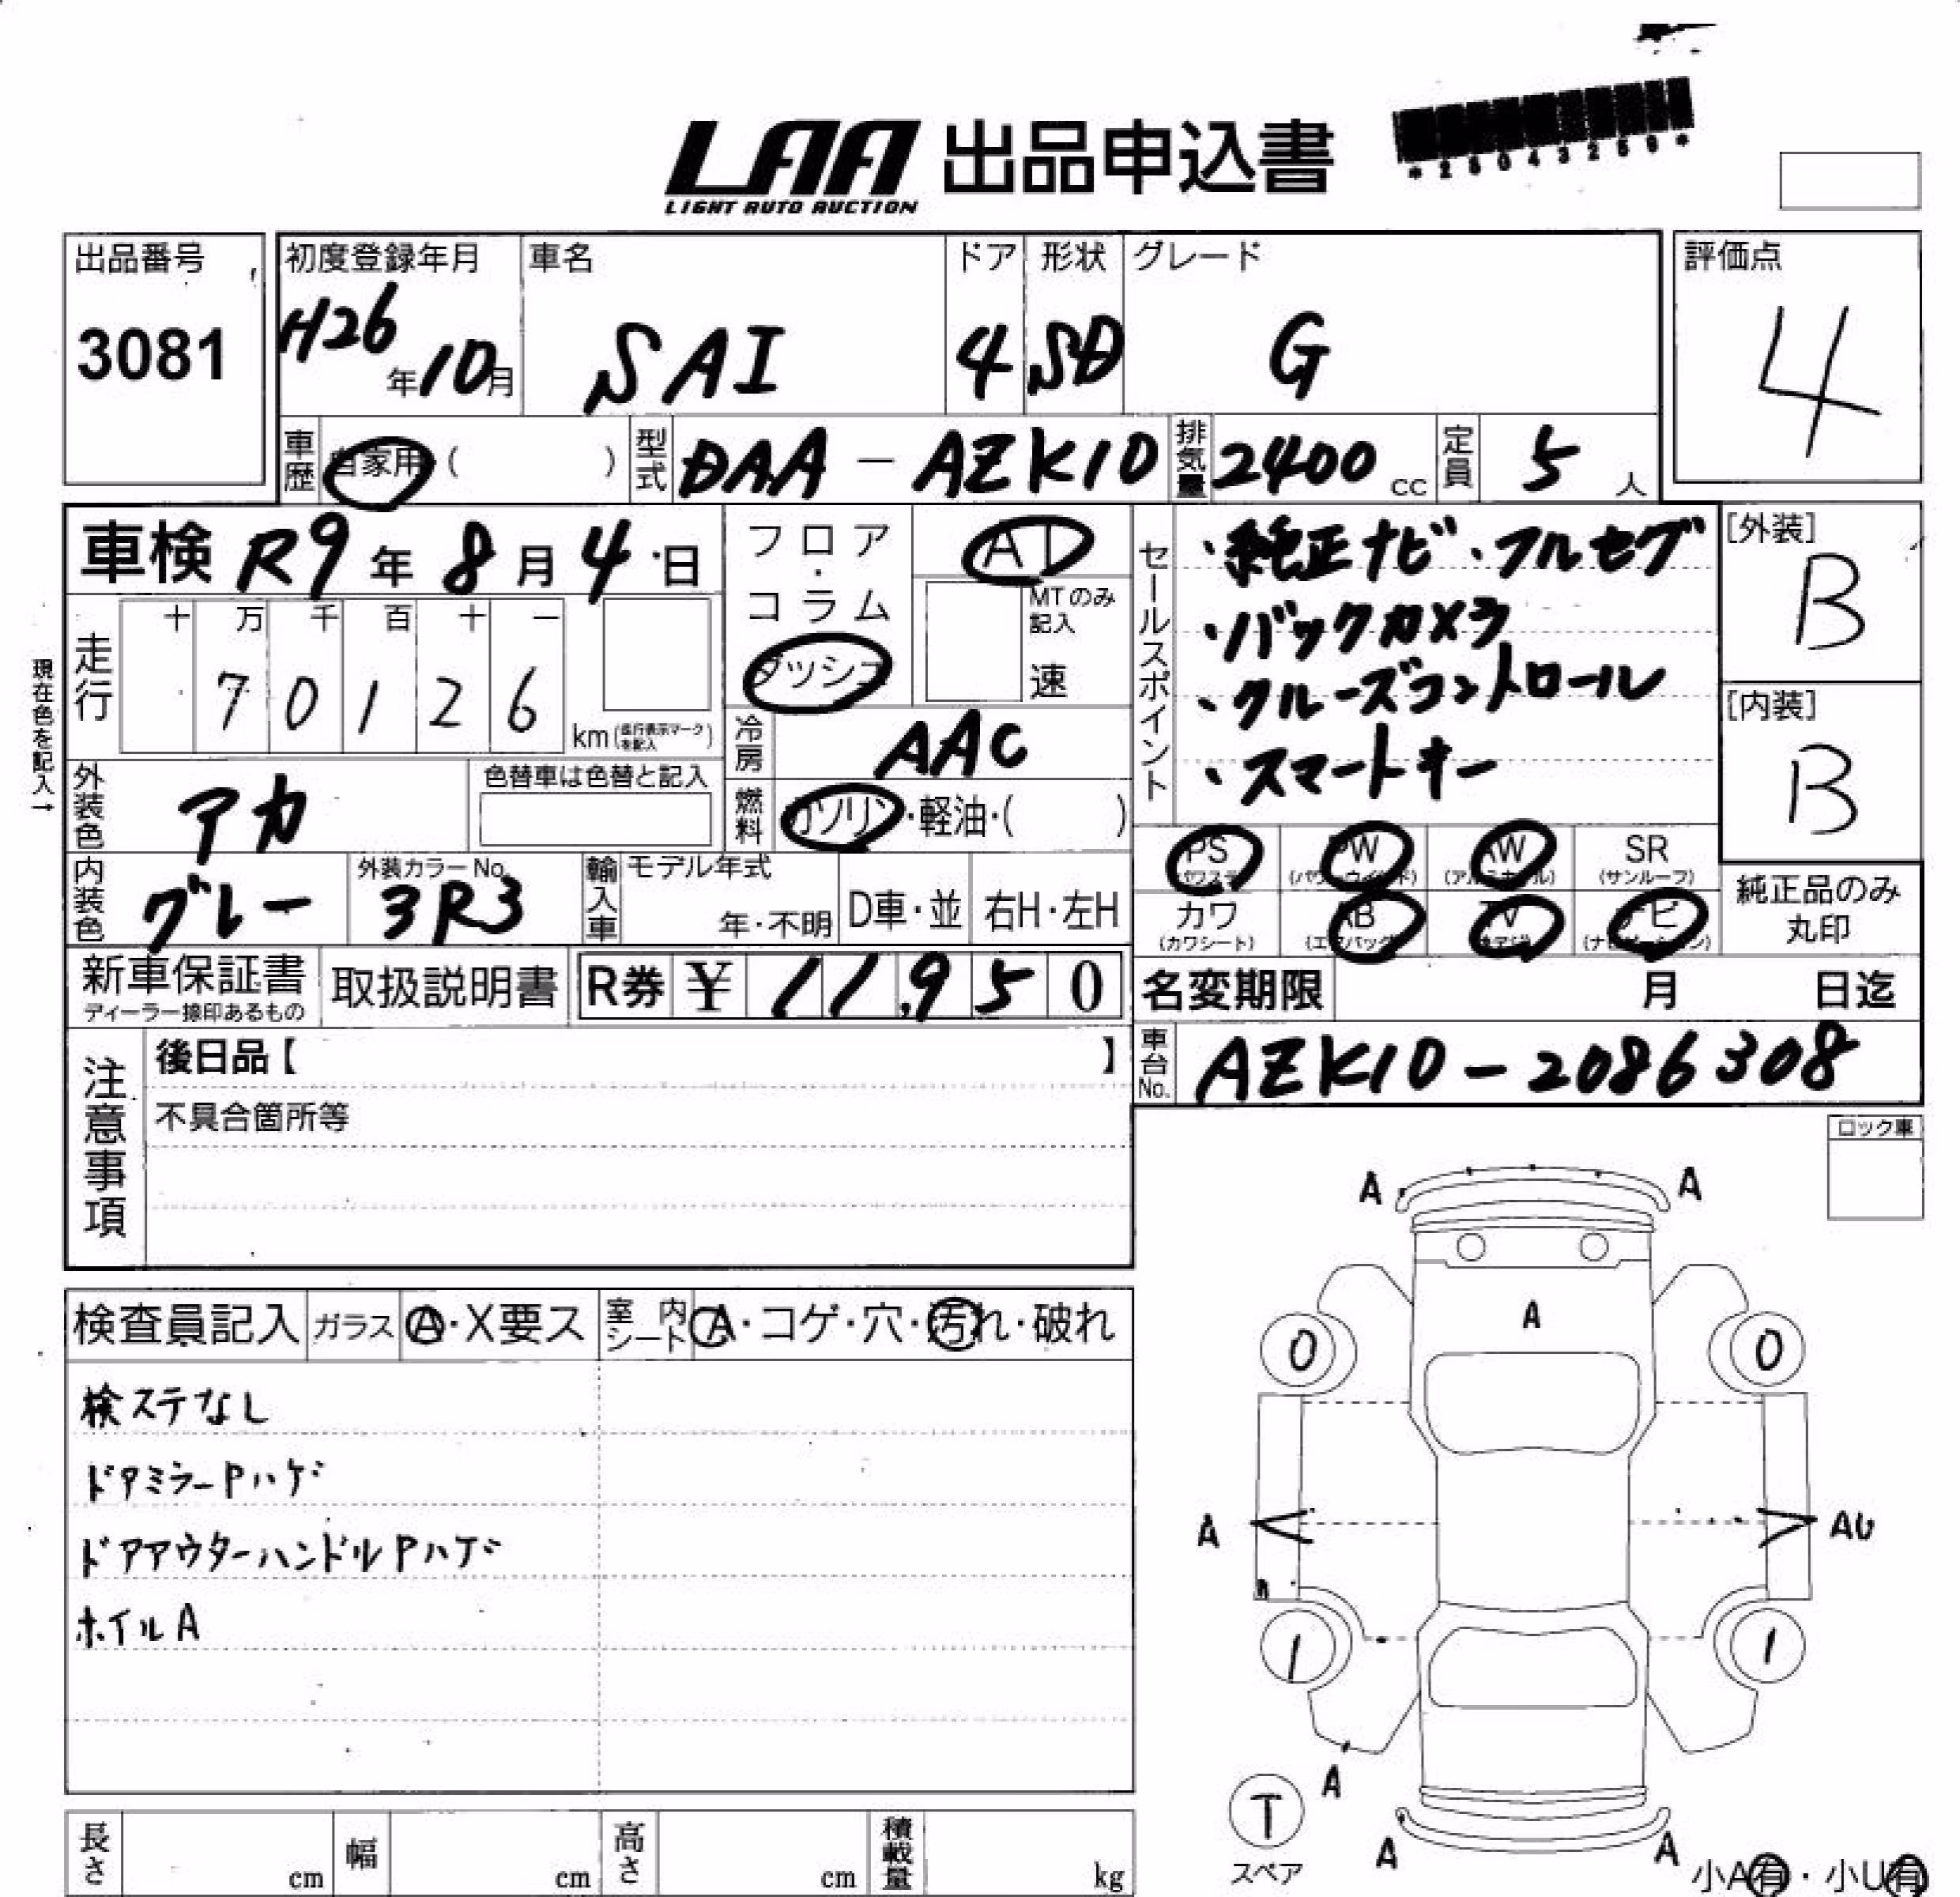 LAA 出品申込書
LIGHT AUTO AUCTION
*25043259*
出品番号
3081
初度登録年月
H26年10月
車名
SAI
ドア
4
形状
SD
グレード
G
評価点
4
車歴 自家用 ( )
型式 DAA-AZK10
排気量 2400 cc
定員 5 人
車検 R9年8月4日
フロア・コラム
ダッシュ
AT
MTのみ記入
速
セールスポイント
・純正ナビ・フルセグ
・バックカメラ
・クルーズコントロール
・スマートキー
[外装]
B
[内装]
B
現在色を記入→
走行
十 万 千 百 十 一
7 0 1 2 6
km (走行表示マークを記入)
冷房 AAC
外装色 アカ
色替車は色替と記入
燃料 ガソリン・軽油・( )
内装色 グレー
外装カラーNo.
3R3
輸入車
モデル年式
年・不明
D車・並
右H・左H
PS (パワステ)
PW (パワーウインド)
AW (アルミホイル)
SR (サンルーフ)
カワ (カワシート)
AB (エアバッグ)
TV
ナビ (ナビゲーション)
純正品のみ丸印
新車保証書
ディーラー捺印あるもの
取扱説明書
R券 ¥ 11,950
名変期限 月 日迄
注意事項
後日品【 】
不具合箇所等
車台No. AZK10-2086308
ロック車
検査員記入
ガラス A・X要ス
室内シート A・コゲ・穴・汚れ・破れ
検ステなし
ドアミラーPハゲ
ドアアウターハンドルPハゲ
ホイルA
A A
A
0 0
A AU
1 1
A
T
スペア
A A
小A有・小U有
長さ cm
幅 cm
高さ cm
積載量 kg